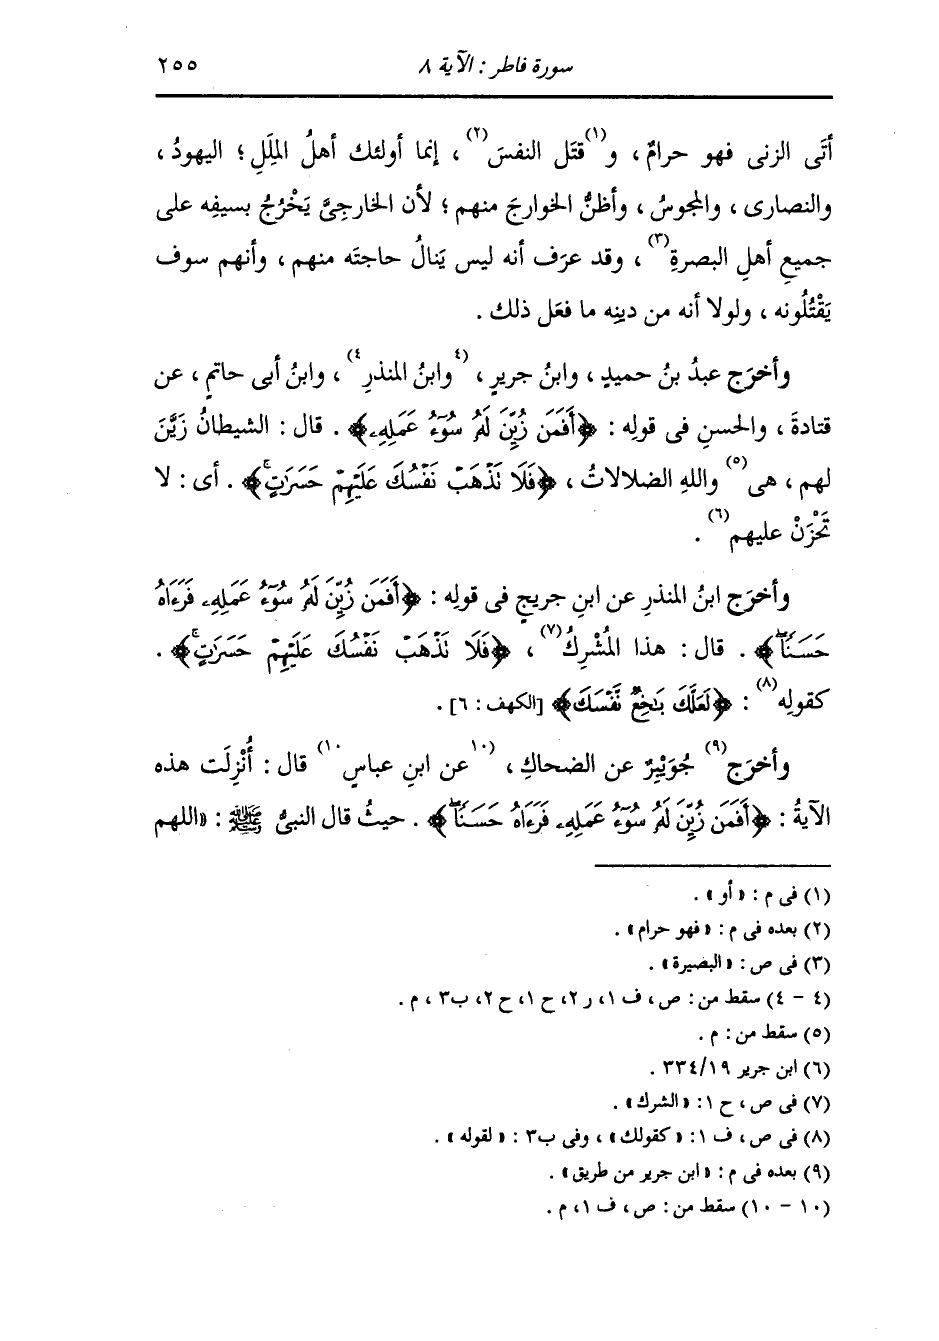 سورة فاطر : الآية ٨ ٢٥٥
أتَى الزنى فهو حرامٌ ، و(١)قتَل النفسَ(٢) ، إنما أولئك أهلُ المِلَلِ ؛ اليهودُ ،
والنصارى ، والمجوسُ ، وأظنُّ الخوارجَ منهم ؛ لأن الخارجىَّ يَخْرُجُ بسيفِه على
جميعِ أهلِ البصرةِ(٣) ، وقد عرَف أنه ليس يَنالُ حاجتَه منهم ، وأنهم سوف
يَقْتُلُونه ، ولولا أنه من دينِه ما فعَل ذلك .
وأخرَج عبدُ بنُ حميدٍ ، وابنُ جريرٍ ، (٤)وابنُ المنذرِ(٤) ، وابنُ أبى حاتمٍ ، عن
قتادةَ ، والحسنِ فى قولِه : ﴿أَفَمَن زُيِّنَ لَهُ سُوٓءُ عَمَلِهِۦ﴾ . قال : الشيطانُ زَيَّنَ
لهم ، هى(٥) واللهِ الضلالاتُ ، ﴿فَلَا نَذْهَبْ نَفْسُكَ عَلَيْهِمْ حَسَرَٰتٍۚ﴾ . أى : لا
تَحْزَنْ عليهم(٦) .
وأخرَج ابنُ المنذرِ عن ابنِ جريجٍ فى قولِه : ﴿أَفَمَن زُيِّنَ لَهُ سُوٓءُ عَمَلِهِۦ فَرَءَاهُ
حَسَنًاۖ﴾ . قال : هذا المُشْرِكُ(٧) ، ﴿فَلَا نَذْهَبْ نَفْسُكَ عَلَيْهِمْ حَسَرَٰتٍۚ﴾ .
كقولِه(٨) : ﴿لَعَلَّكَ بَٰخِعٌ نَّفْسَكَ﴾ [الكهف : ٦] .
وأخرَج(٩) جُوَيْبِرٌ عن الضحاكِ ، (١٠)عن ابنِ عباسٍ(١٠) قال : أُنْزِلَت هذه
الآيةُ : ﴿أَفَمَن زُيِّنَ لَهُ سُوٓءُ عَمَلِهِۦ فَرَءَاهُ حَسَنًاۖ﴾ . حيثُ قال النبىُّ ﷺ : «اللهم
(١) فى م : «أو» .
(٢) بعده فى م : «فهو حرام» .
(٣) فى ص : «البصيرة» .
(٤ - ٤) سقط من : ص ، ف ١ ، ر ٢ ، ح ١ ، ح ٢ ، ب ٣ ، م .
(٥) سقط من : م .
(٦) ابن جرير ٣٣٤/١٩ .
(٧) فى ص ، ح ١ : «الشرك» .
(٨) فى ص ، ف ١ : «كقولك» ، وفى ب ٣ : «لقوله» .
(٩) بعده فى م : «ابن جرير من طريق» .
(١٠ - ١٠) سقط من : ص ، ف ١ ، م .